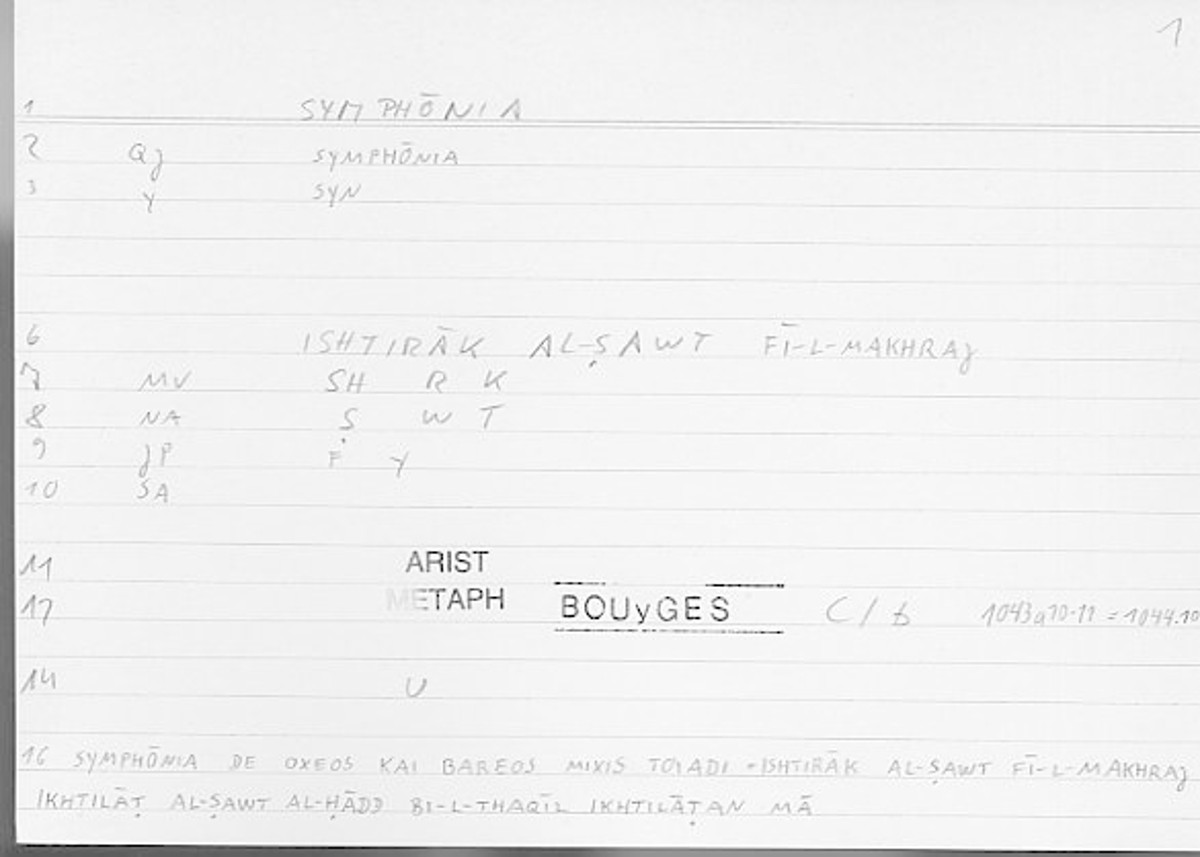 1
1 SYMPHŌNIA
2 Qj SYMPHŌNIA
3 Y SYN
6 ISHTIRĀK AL-ṢAWT FĪ-L-MAKHRAJ
7 MV SH R K
8 NA Ṣ W T
9 JP F Y
10 SA
11 ARIST
17 METAPH BOUyGES C/b 1043a10-11 = 1044.10
14 U
16 SYMPHŌNIA DE OXEOS KAI BAREOS MIXIS TOIADI = ISHTIRĀK AL-ṢAWT FĪ-L-MAKHRAJ
IKHTILĀṬ AL-ṢAWT AL-ḤĀDD BI-L-THAQĪL IKHTILĀṬAN MĀ